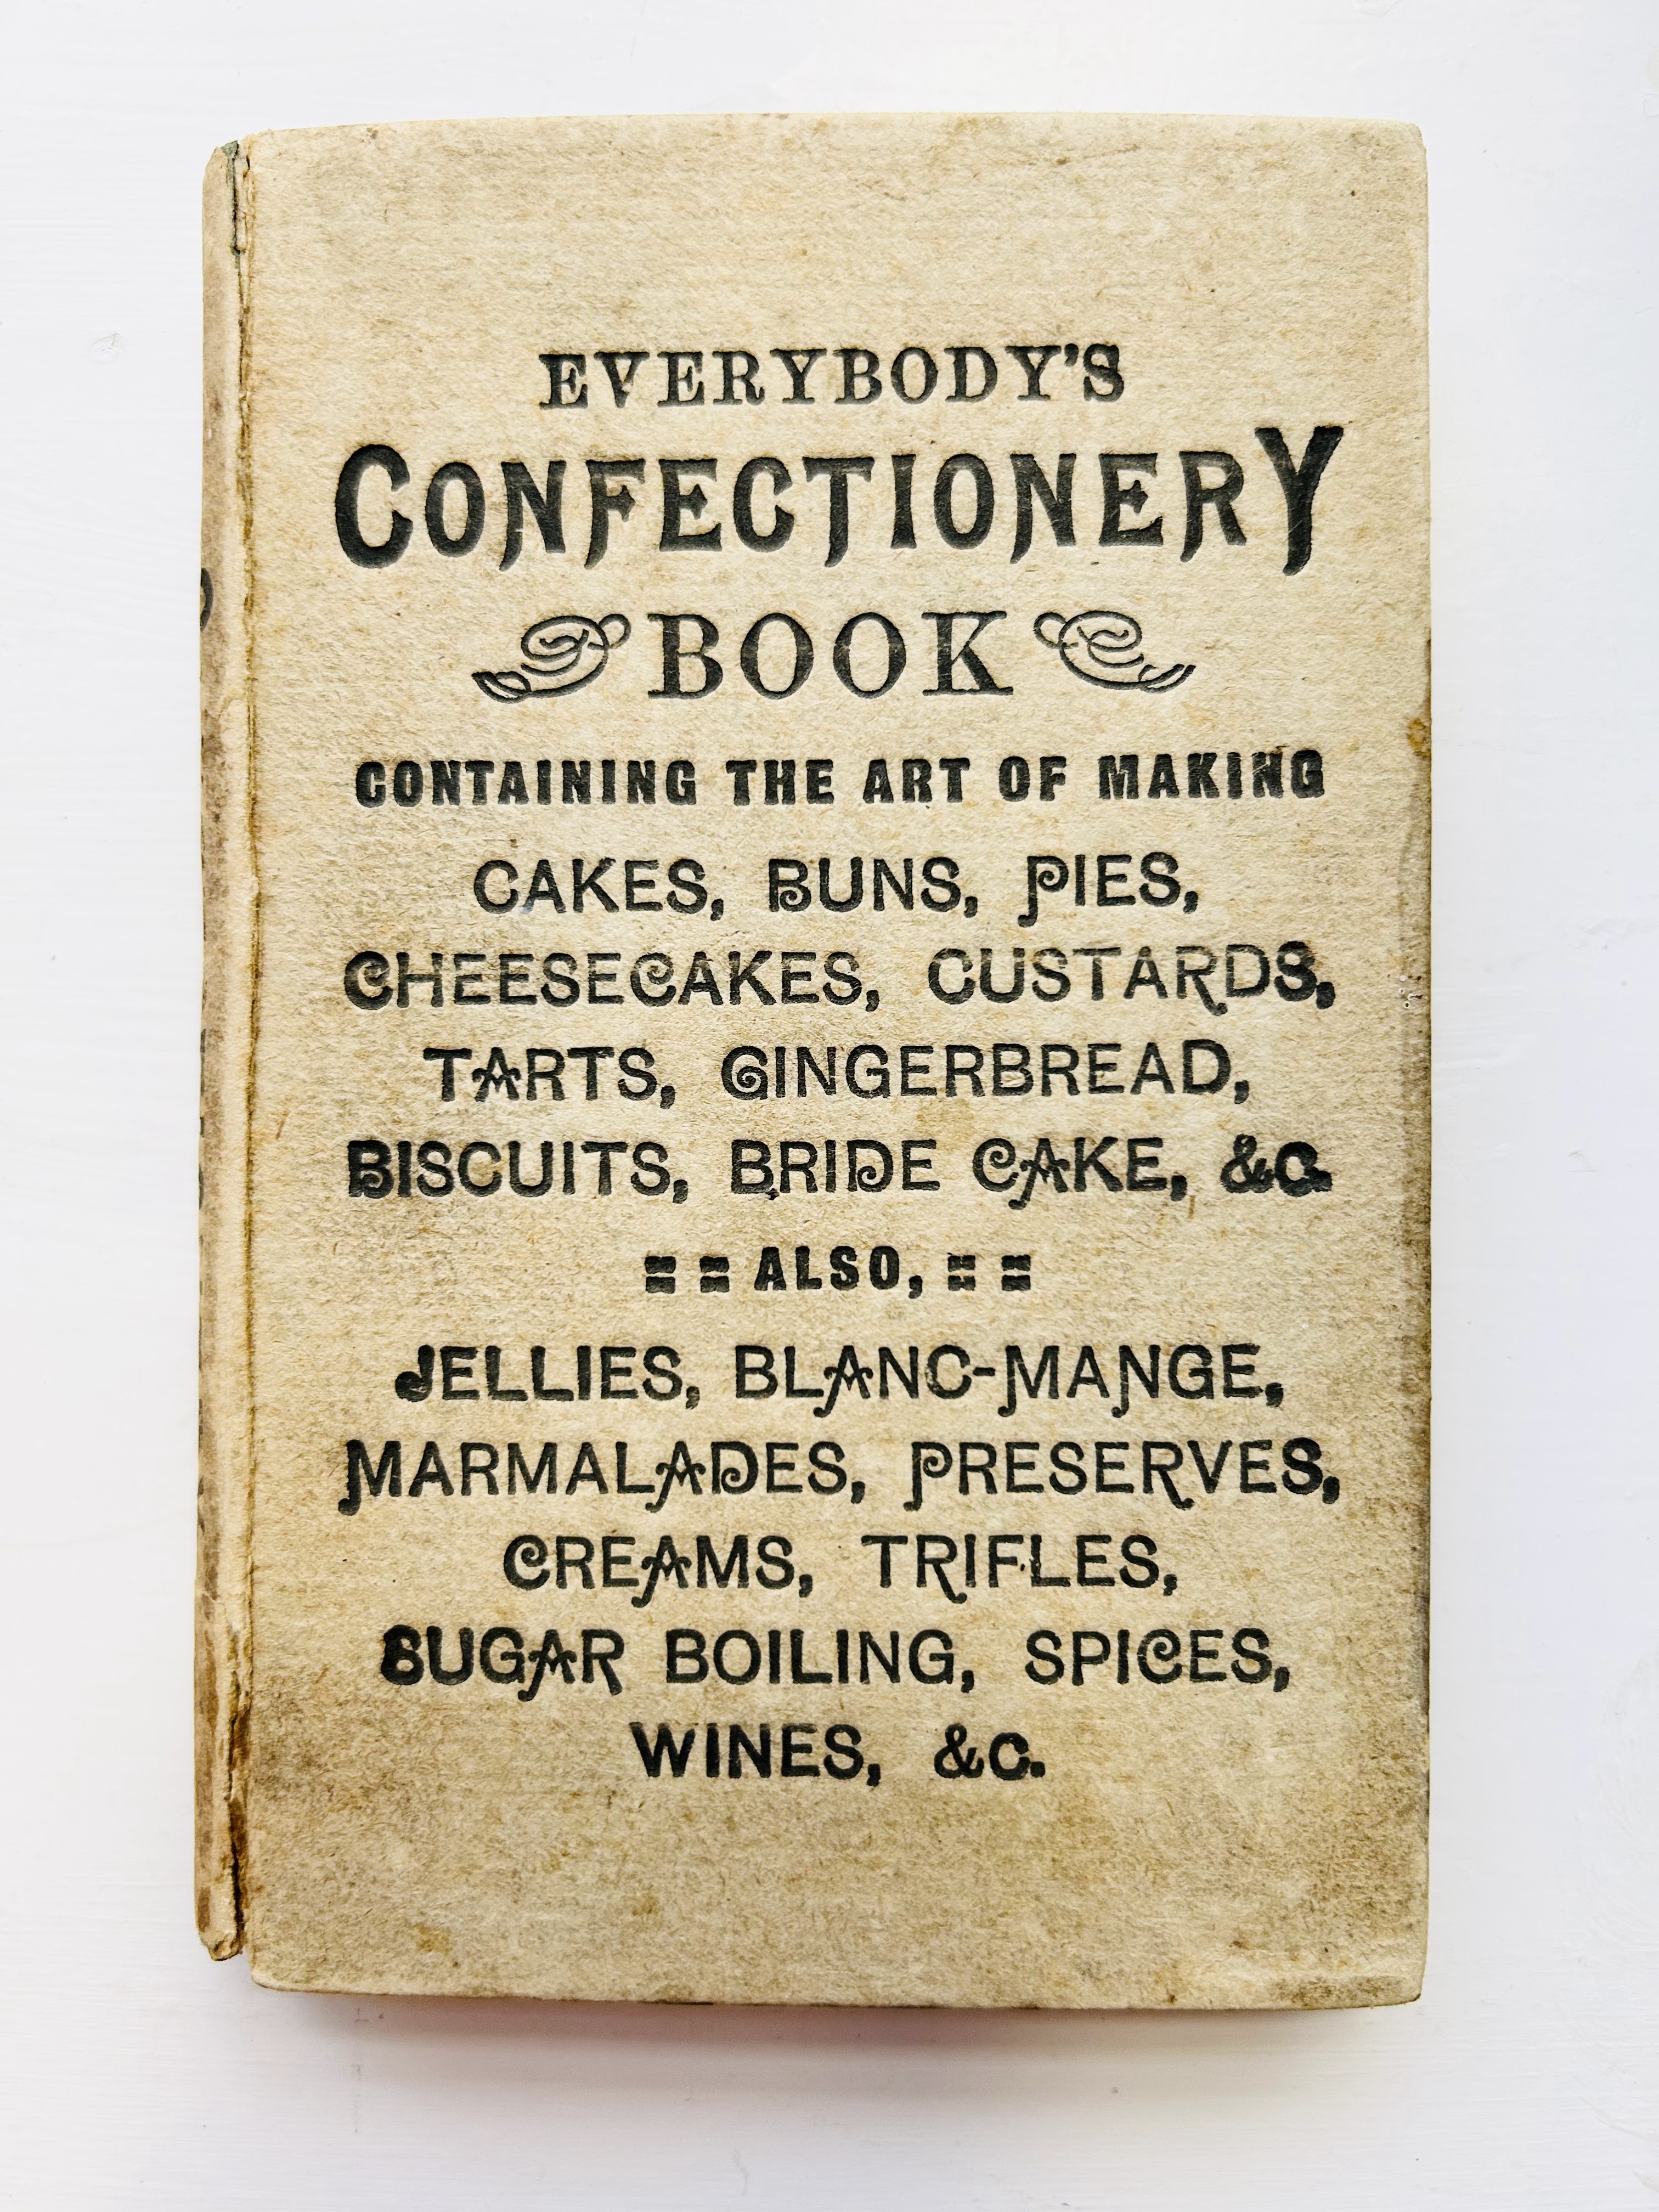 EVERYBODY'S
CONFECTIONERY
BOOK
CONTAINING THE ART OF MAKING
CAKES, BUNS, PIES,
CHEESECAKES, CUSTARDS,
TARTS, GINGERBREAD,
BISCUITS, BRIDE CAKE, &C.
:: :: ALSO, :: ::
JELLIES, BLANC-MANGE,
MARMALADES, PRESERVES,
CREAMS, TRIFLES,
SUGAR BOILING, SPICES,
WINES, &C.